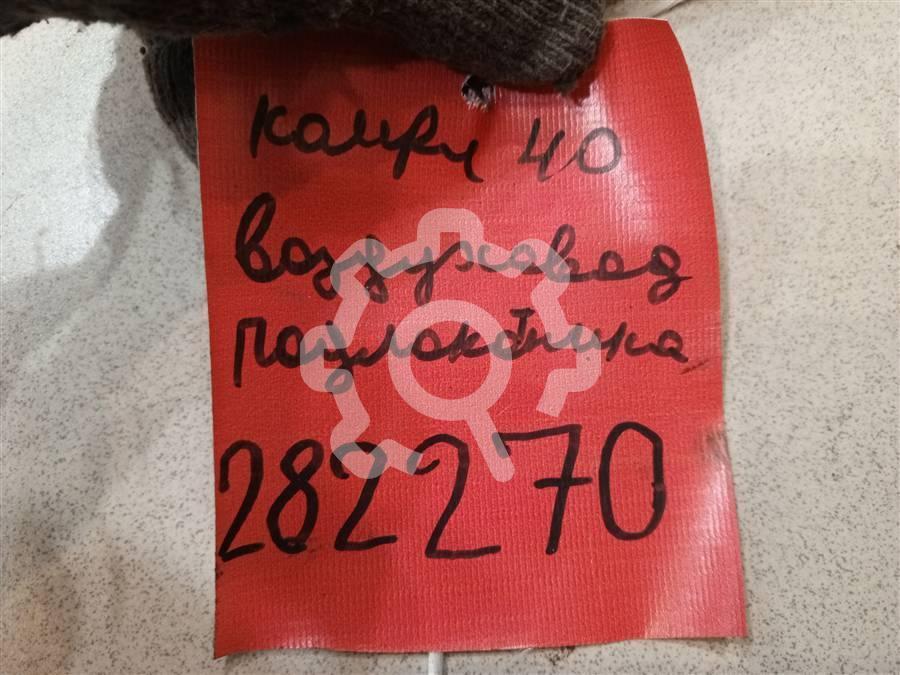 камри 40
воздуховод
подлокотника
282270